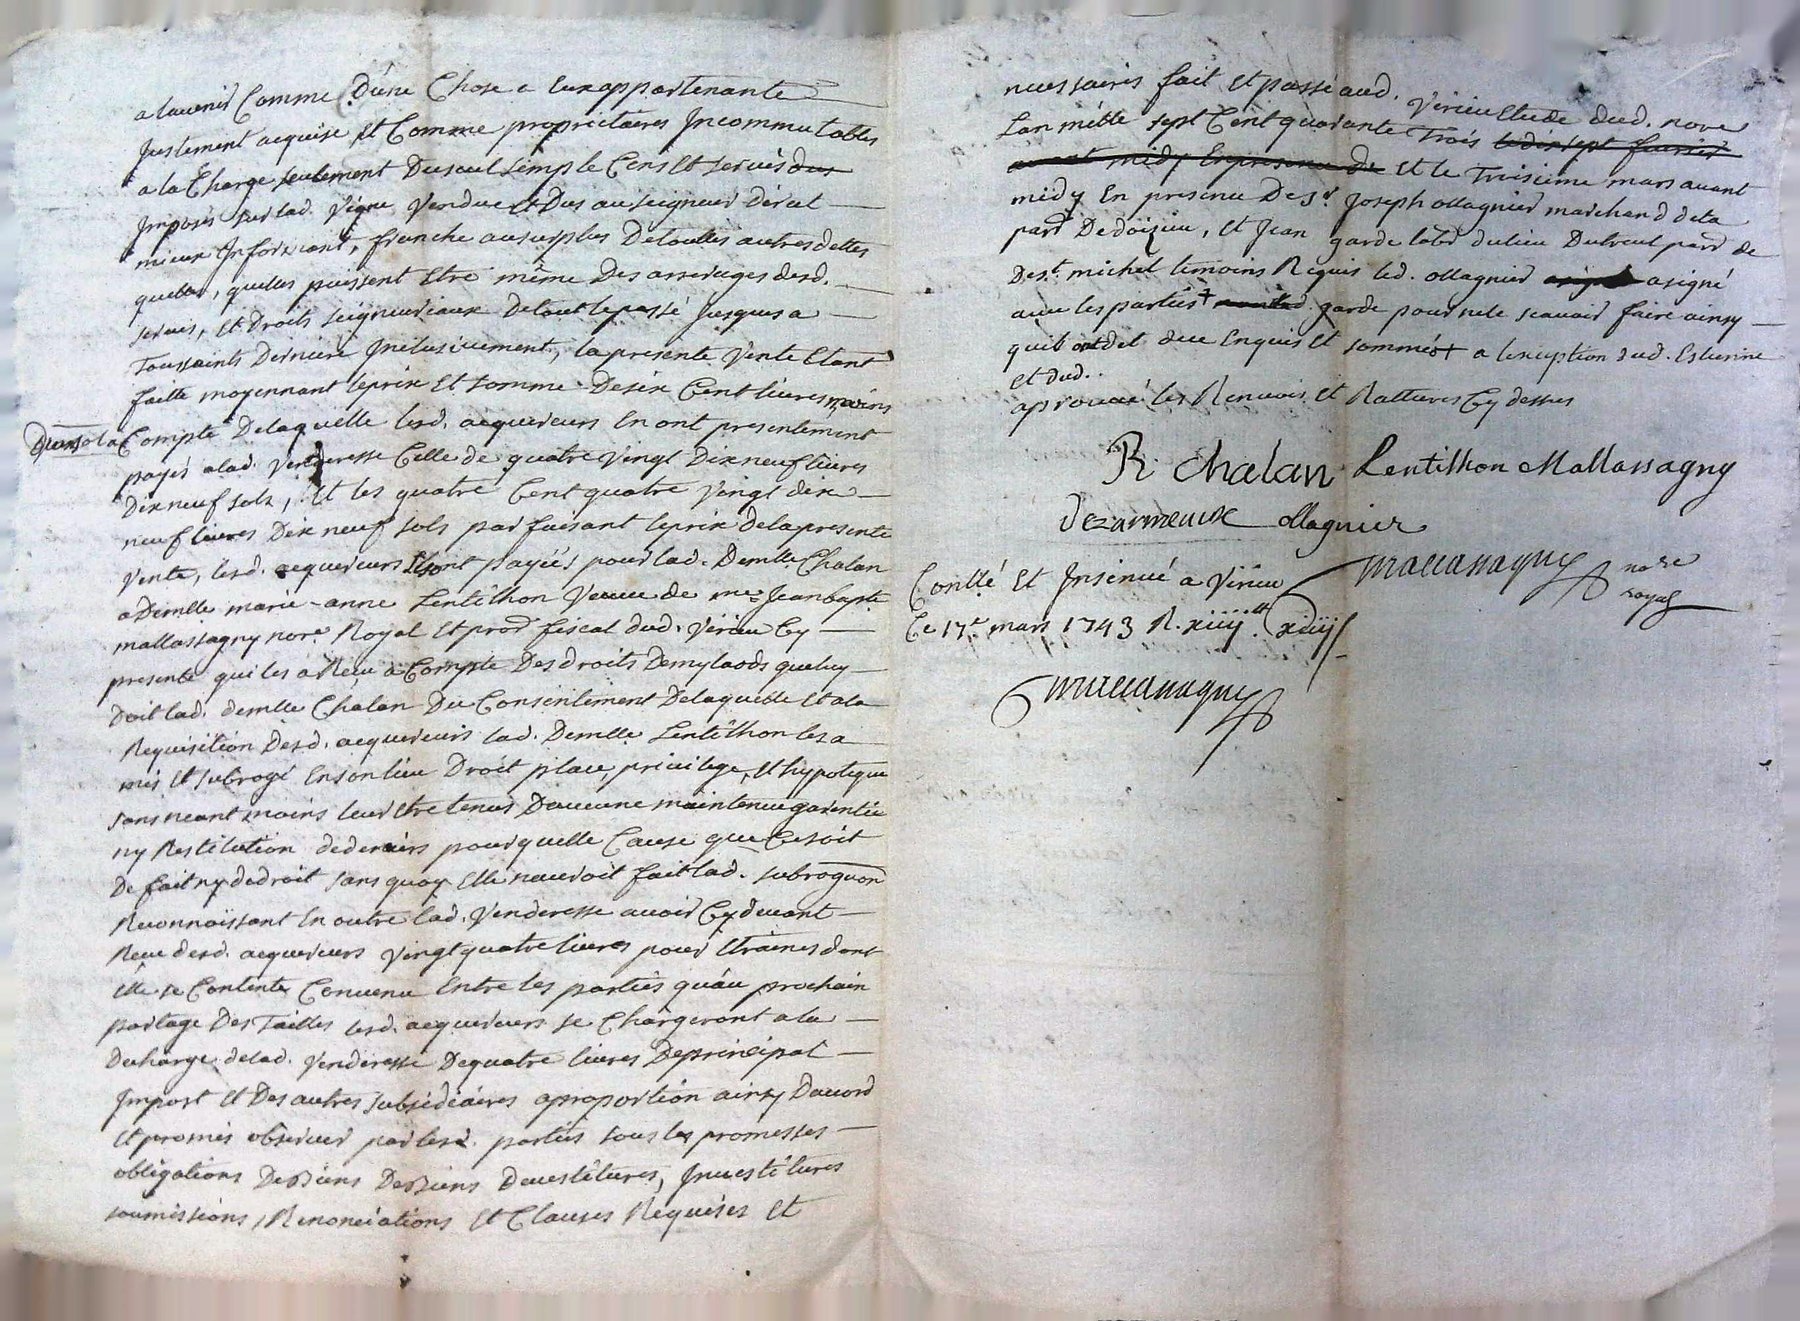 a lauenir Comme D'une Chose a Eux appartenante
Justement acquise et Comme proprietaires Incommutables
a la Charge seulement Du seul simple Cens et seruis dus
Imposés sur lad. Vigne Vendue et Dus au seigneur Direct
mieux Informant, franche au surplus De touttes autres dettes
quelles, quelles puissent Etre même Des arrerages desd.
seruis, et Droits seigneuriaux De tout le passé Jusques a
Toussaints Derniere Inclusiuement, la presente Vente Etant
faitte moyennant le prix et somme De six Cent liures moins
Deux sols a Compte De laquelle lesd. acquereurs En ont presentement
payés a lad. Venderesse Celle de quatre Vingt Dix neuf liures
Dix neuf sols, Et les quatre Cent quatre Vingt dix
neuf liures Dix neuf sols parfaisant le prix de la presente
Vente, lesd. acquereurs L'ont payéés pour lad. Demlle Chalan
a Demlle marie-anne Lentilhon Veuue de me Jean bapte
mallassagny nore Royal et procr fiscal dud. Virieu Cy
presente qui les a Reçu a Compte Des droits Demy laods que luy
Doit lad. demlle Chalan Du Consentement De laquelle Et a la
Requisition Desd. acquereurs lad. Demlle Lentilhon les a
mis et subrogé En son lieu Droit place, priuilege, et hypoteque
sans neantmoins leur Etre tenue D'aucune maintenue garentie
ny Restitution de deniers pour quelle Cause que Ce soit
De fait ny de droit sans quoy Elle n'auroit fait lad. subrogaon
Reconnaissant En outre lad. Venderesse auoir Cy deuant
Reçu desd. acquereurs Vingt quatre liures pour Etraines dont
Elle se Contente Conuenu Entre les parties qu'au prochain
partage Des Tailles lesd. acquereurs se Chargeront a la
Decharge de lad. Venderesse De quatre liures De principal
Impost et Des autres subsidiaires a proportion ainsy D'accord
Et promis obseruer par lesd. parties sous les promesses
obligations De Biens De Biens Deuestitures, Inuestitures
soumissions, Renonciations Et Clauses Requises Et
necessaires fait et passé aud. Virieu Etude dud. nore
L'an mille sept Cent quarante Trois le dix sept feurier
auant midy En presence De Et le Troisieme mars auant
midy En presence De Sr Joseph ollagnier marchand de la
parr De doizieu, et Jean garde labr du lieu Dutreul parr de
De St michel temoins Requis led. ollagnier a signé
auec les parties + garde pour ne le scauoir faire ainsy
qu'il ont dit de ce Enquis Et sommés + a l'exception dud. Estienne
et dud.
aprouué les Renuois et Rattures Cy dessus
R. Chalan Lentilhon Mallassagny
Dezarmeaux ollagnier
mallassagny nore
royal
Conllé Et Insinué a Virieu
Ce 17e mars 1743 R.
mallassagny